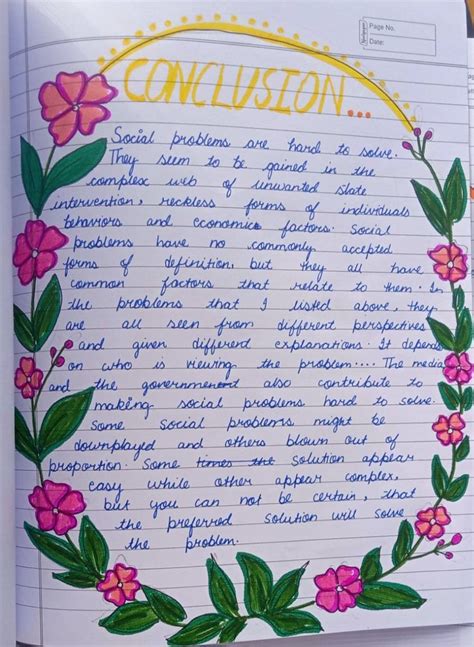 Page No.
Date:
CONCLUSION...
Social problems are hard to solve.
They seem to be gained in the
complex web of unwanted state
intervention, reckless forms of individuals
behaviors and economics factors. Social
problems have no commonly accepted
forms of definition, but they all have
common factors that relate to them. In
the problems that I listed above, they
are all seen from different perspectives
and given different explanations. It depends
on who is viewing the problem.... The media
and the government also contribute to
making social problems hard to solve.
Some social problems might be
downplayed and others blown out of
proportion. Some times the solution appear
easy while other appear complex,
but you can not be certain, that
the preferred solution will solve
the problem.